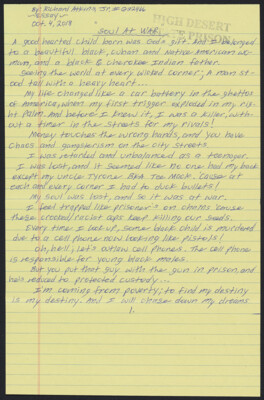 By: Richard Adkins Jr.
-essay-
Oct. 4, 2018
HIGH DESERT
PRISON
Soul At War!
A good hearted child born was God's gift. And I belonged
to a beautiful black, Cuban and Native American wo-
man, and a black & Cherokee Indian father.
Seeing the world at every wicked corner; A man st-
ood tall with a heavy heart...
My life changed like a car battery in the ghettos
of America, when my first trigger exploded in my ri-
ht palm. And before I knew it, I was a killer, with-
out a timer in the streets for my rivals!
Money touches the wrong hands, and you have
chaos and gangsterism on the city streets.
I was retarded and unbalanced as a teenager.
I was lost, and it seemed like no one had my back
except my uncle Tyrone AKA Tee Mack. Cause at
each and every corner I had to duck bullets!
My soul was lost, and so it was at war.
I feel trapped like prisoner's on chains cause
these crooked/racist cops keep killing our seeds.
Every time I look up, some black child is murdered
due to a cell phone now looking like pistols!
Oh, hell; let's outlaw cell phones. The cell phone
is responsible for young black males.
But you put that guy with the gun in prison and
he's reduced to protected custody...
I'm coming from poverty; to find my destiny
is my destiny. And I will chase down my dreams
1.